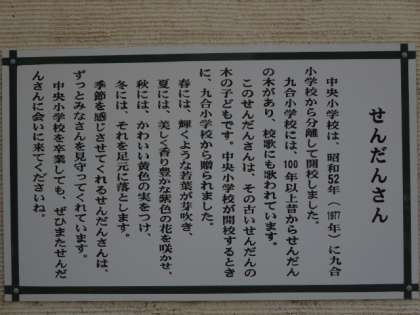 せんだんさん
中央小学校は、昭和52年（1977年）に九合
小学校から分離して開校しました。
九合小学校には、100年以上昔からせんだん
の木があり、校歌にも歌われています。
このせんだんさんは、その古いせんだんの
木の子どもです。中央小学校が開校するとき
に、九合小学校から贈られました。
春には、輝くような若葉が芽吹き、
夏には、美しく香り豊かな紫色の花を咲かせ、
秋には、かわいい黄色の実をつけ、
冬には、それを足元に落とします。
季節を感じさせてくれるせんだんさんは、
ずっとみなさんを見守ってくれています。
中央小学校を卒業しても、ぜひまたせんだ
んさんに会いに来てくださいね。